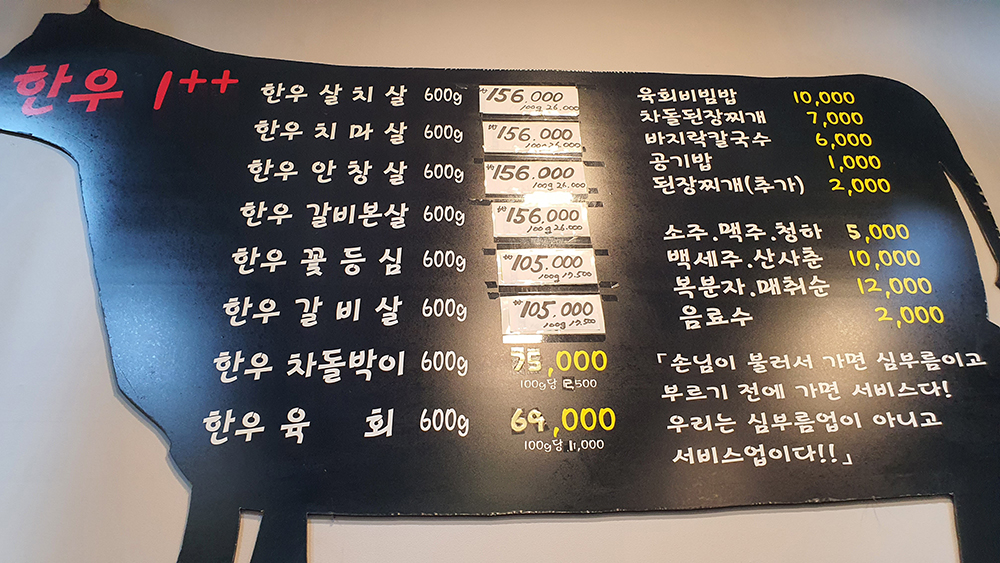 한우 1++
한우 살치살 600g ₩156.000
100g 26.000
한우 치마살 600g ₩156.000
100g 26.000
한우 안창살 600g ₩156.000
100g 26.000
한우 갈비본살 600g ₩156.000
100g 26.000
한우 꽃등심 600g ₩105.000
100g 17.500
한우 갈비살 600g ₩105.000
100g 17.500
한우 차돌박이 600g 75,000
100g당
한우 육 회 600g 69,000
100g당 11,000
육회비빔밥 10,000
차돌된장찌개 7,000
바지락칼국수 6,000
공기밥 1,000
된장찌개(추가) 2,000
소주.맥주.청하 5,000
백세주.산사춘 10,000
복분자.매취순 12,000
음료수 2,000
「손님이 불러서 가면 심부름이고
부르기 전에 가면 서비스다!
우리는 심부름업이 아니고
서비스업이다!!」